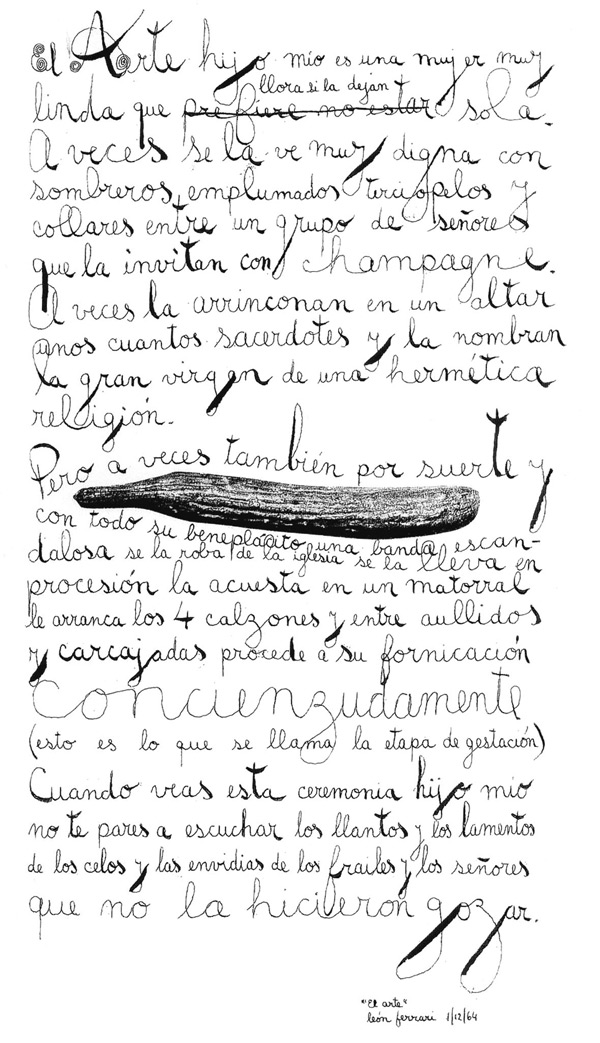 El Arte hijo mío es una mujer muy
llora si la dejan
linda que prefiere no estar sola.
A veces se la ve muy digna con
sombreros emplumados terciopelos y
collares entre un grupo de señores
que la invitan con champagne.
A veces la arrinconan en un altar
unos cuantos sacerdotes y la nombran
la gran virgen de una hermética
religión.
Pero a veces también por suerte y
con todo su beneplácito una banda escan-
dalosa se la roba de la iglesia se la lleva en
procesión la acuesta en un matorral
le arranca los 4 calzones y entre aullidos
y carcajadas procede a su fornicación
concienzudamente
(esto es lo que se llama la etapa de gestación)
Cuando veas esta ceremonia hijo mio
no te pares a escuchar los llantos y los lamentos
de los celos y las envidias de los frailes y los señores
que no la hicieron gozar.
"El arte"
león ferrari 1/12/64